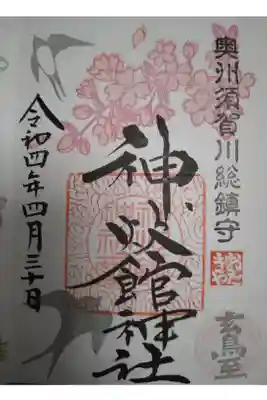 奥州須賀川総鎮守
神炊館神社
令和四年四月三十日
玄鳥至